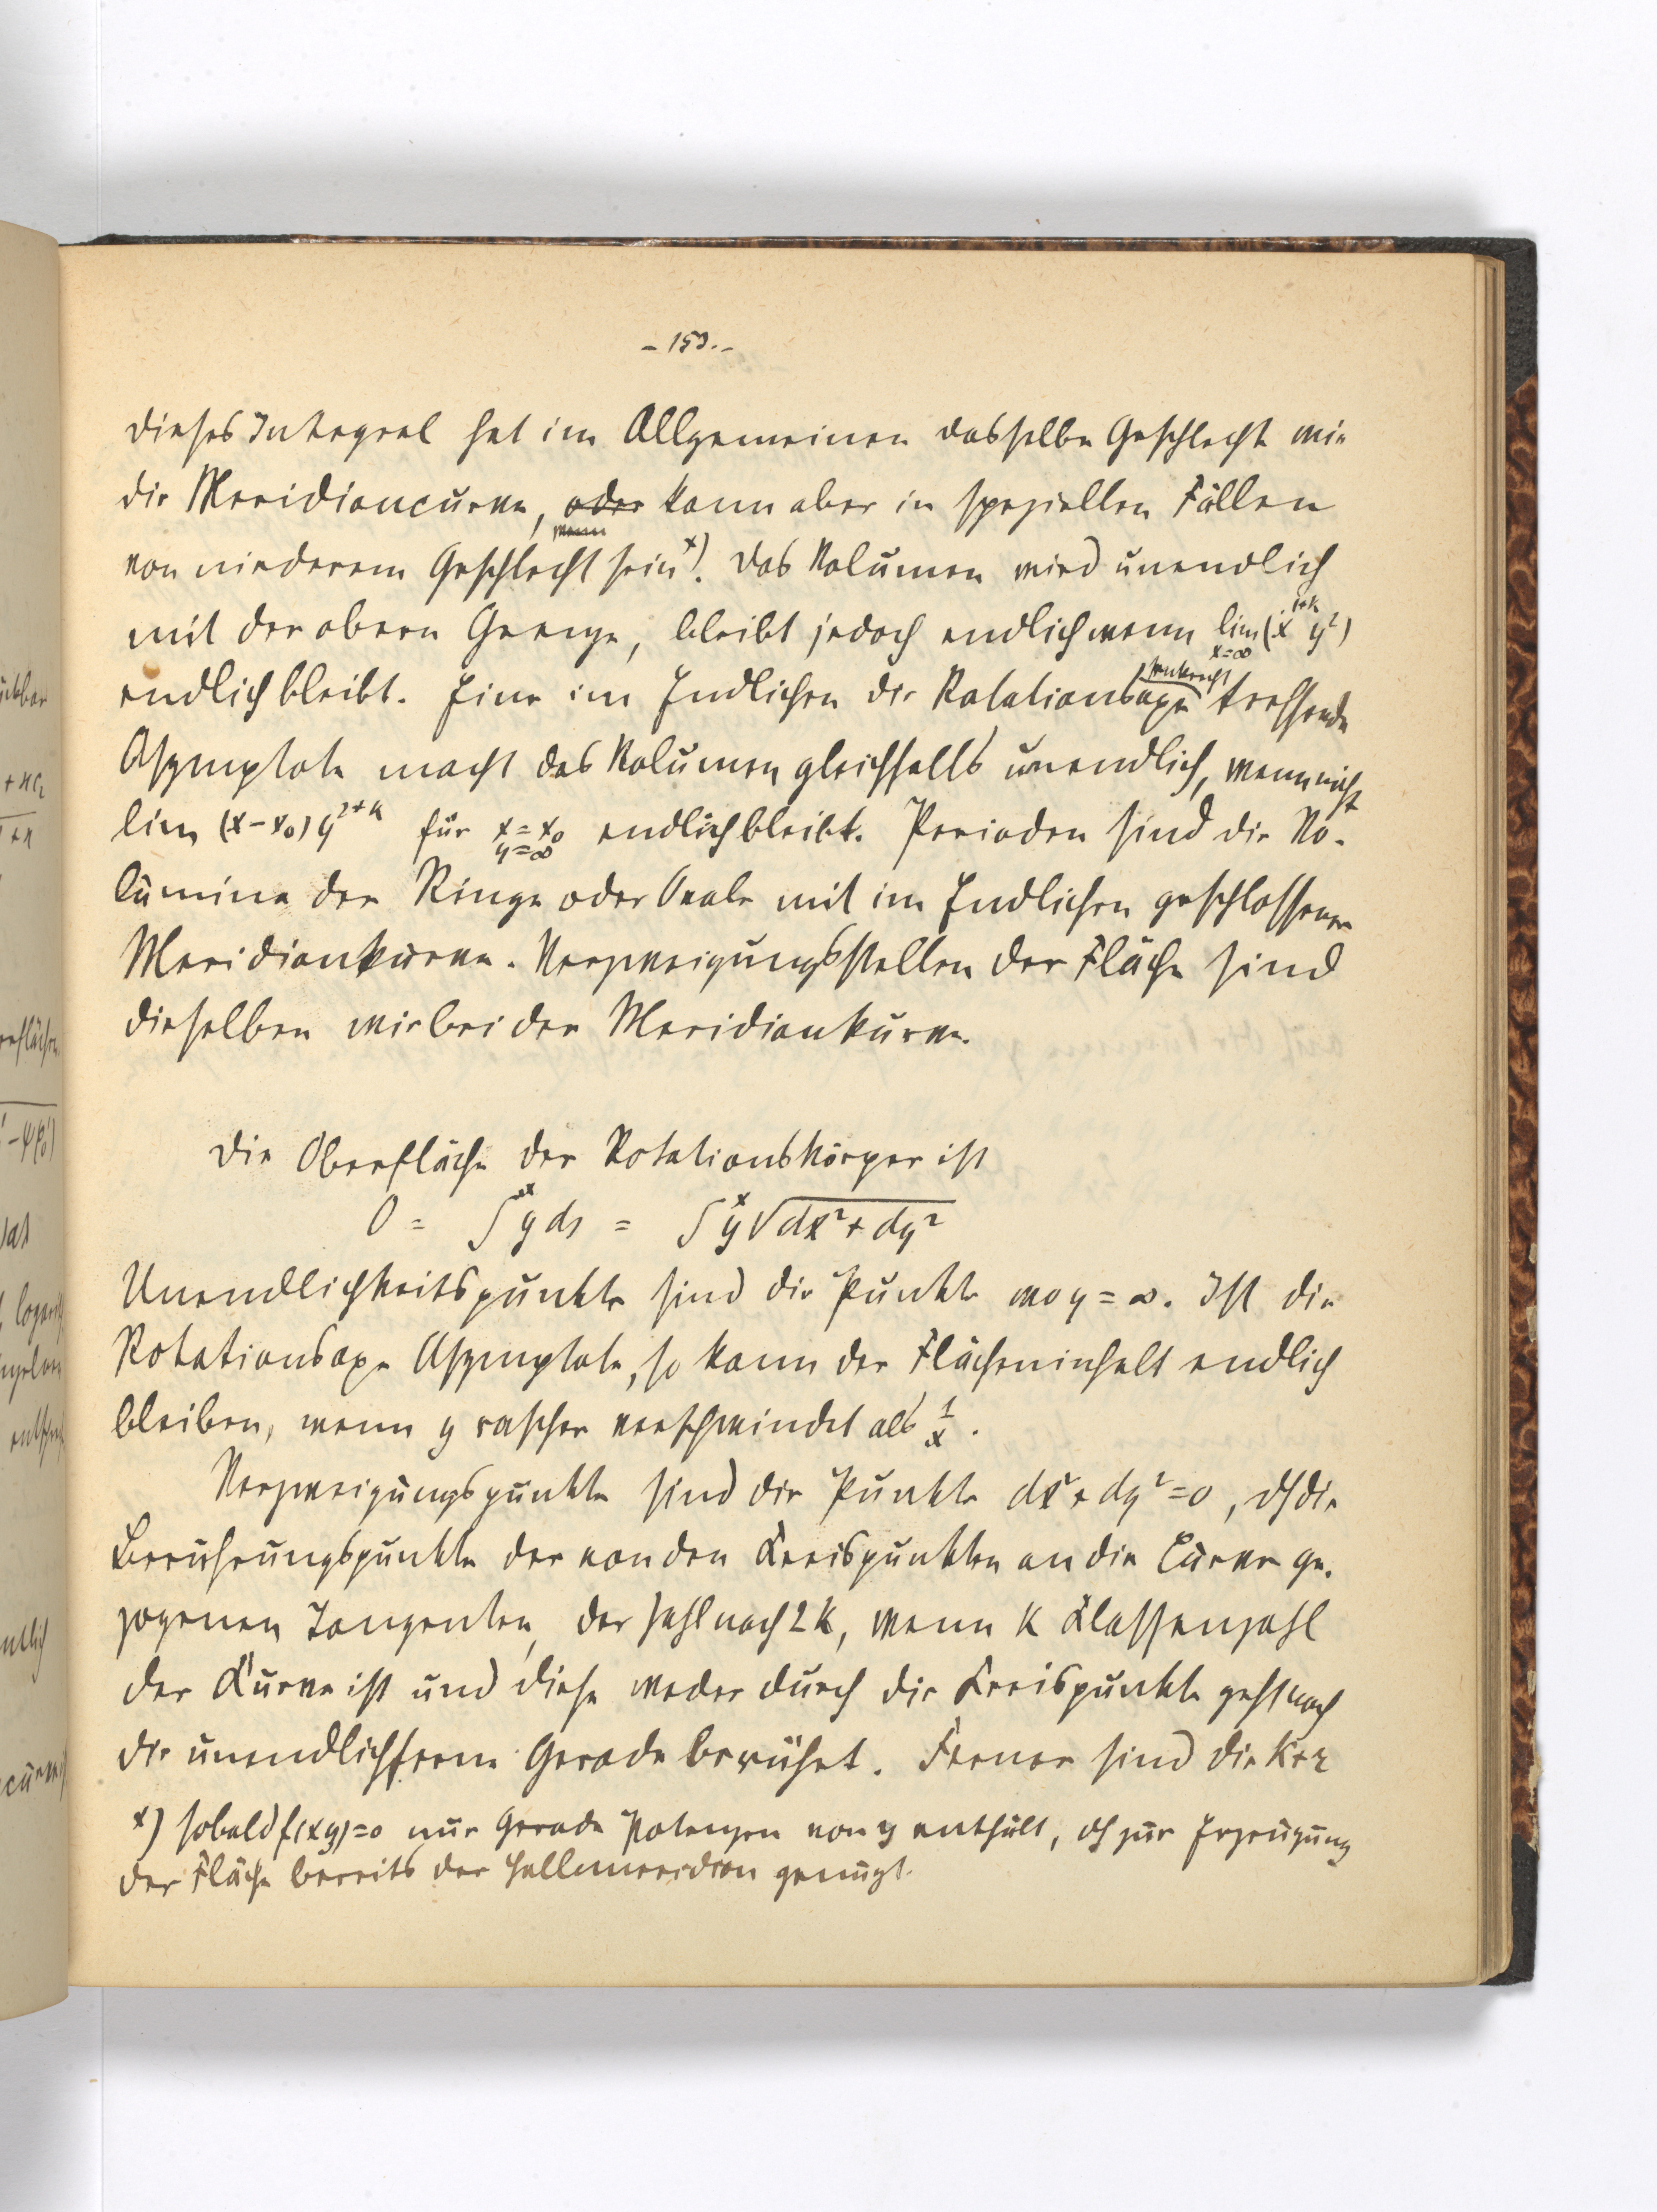 - 153. -
dieses Integral hat im Allgemeinen dasselbe Geschlecht wie
die Meridiancurve, oder kann aber in speziellen Fällen
wenn
von niederem Geschlecht sein x). Das Volumen wird unendlich
mit der obern Grenze, bleibt jedoch endlich wenn lim x=∞ (x^{1+k} y²)
endlich bleibt. Eine im Endlichen die Rotationsaxe senkrecht treffende
Asymptote macht das Volumen gleichfalls unendlich, wenn nicht
lim (x-x₀) y^{2+k} für x=x₀ y=∞ endlich bleibt. Perioden sind die Vo-
lumina der Ringe oder Ovale mit im Endlichen geschlossener
Meridiankurve. Verzweigungsstellen der Fläche sind
dieselben wie bei der Meridiankurve.
Die Oberfläche der Rotationskörper ist
O = ∫^x y ds = ∫^x y √dx²+dy²
Unendlichkeitspunkte sind die Punkte wo y=∞. Ist die
Rotationsaxe Asymptote, so kann der Flächeninhalt endlich
bleiben, wenn y rascher verschwindet als 1/x.
Verzweigungspunkte sind die Punkte dx²+dy²=0, dh die
Berührungspunkte der von den Kreispunkten an die Curve ge-
zogenen Tangenten, der Zahl nach 2k, wenn k Klassenzahl
der Kurve ist und diese weder durch die Kreispunkte geht noch
die unendlichferne Gerade berührt. Ferner sind die k+r
x) sobald f(xy)=0 nur gerade Potenzen von y enthält, dh zur Erzeugung
der Fläche bereits der Halbmeridian genügt.